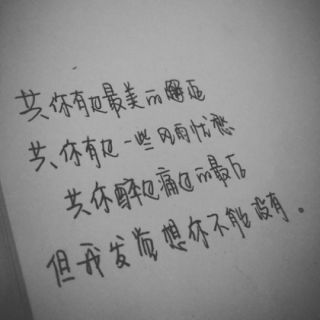 共你有过最美的邂逅
共你有过一些风雨忧愁
共你醉过痛过的最后
但我发觉想你不能没有。